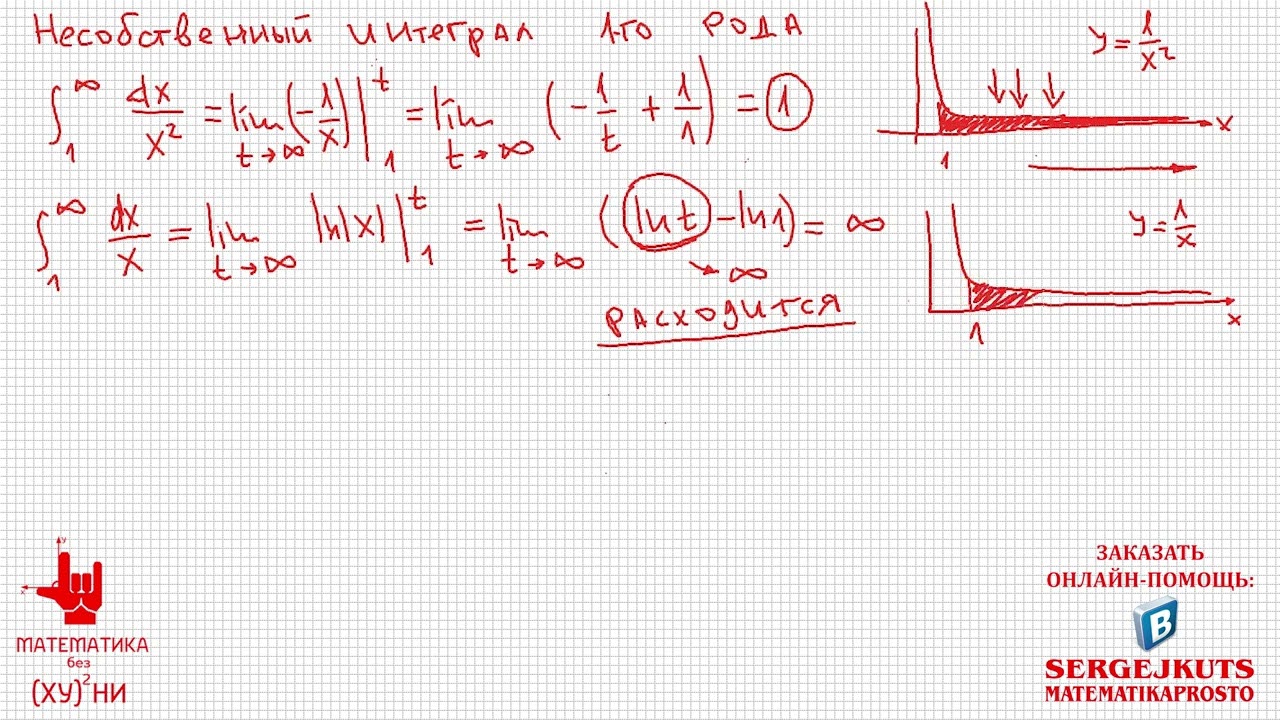 Несобственный интеграл 1-го рода
∫₁^∞ dx/x² = lim t→∞ (-1/x) |₁^t = lim t→∞ (-1/t + 1/1) = 1
y = 1/x²
x
1
∫₁^∞ dx/x = lim t→∞ ln|x| |₁^t = lim t→∞ (ln t - ln1) = ∞
→ ∞
РАСХОДИТСЯ
y = 1/x
x
1
y
x
МАТЕМАТИКА
без
(ХУ)²НИ
ЗАКАЗАТЬ
ОНЛАЙН-ПОМОЩЬ:
B
SERGEJKUTS
MATEMATIKAPROSTO